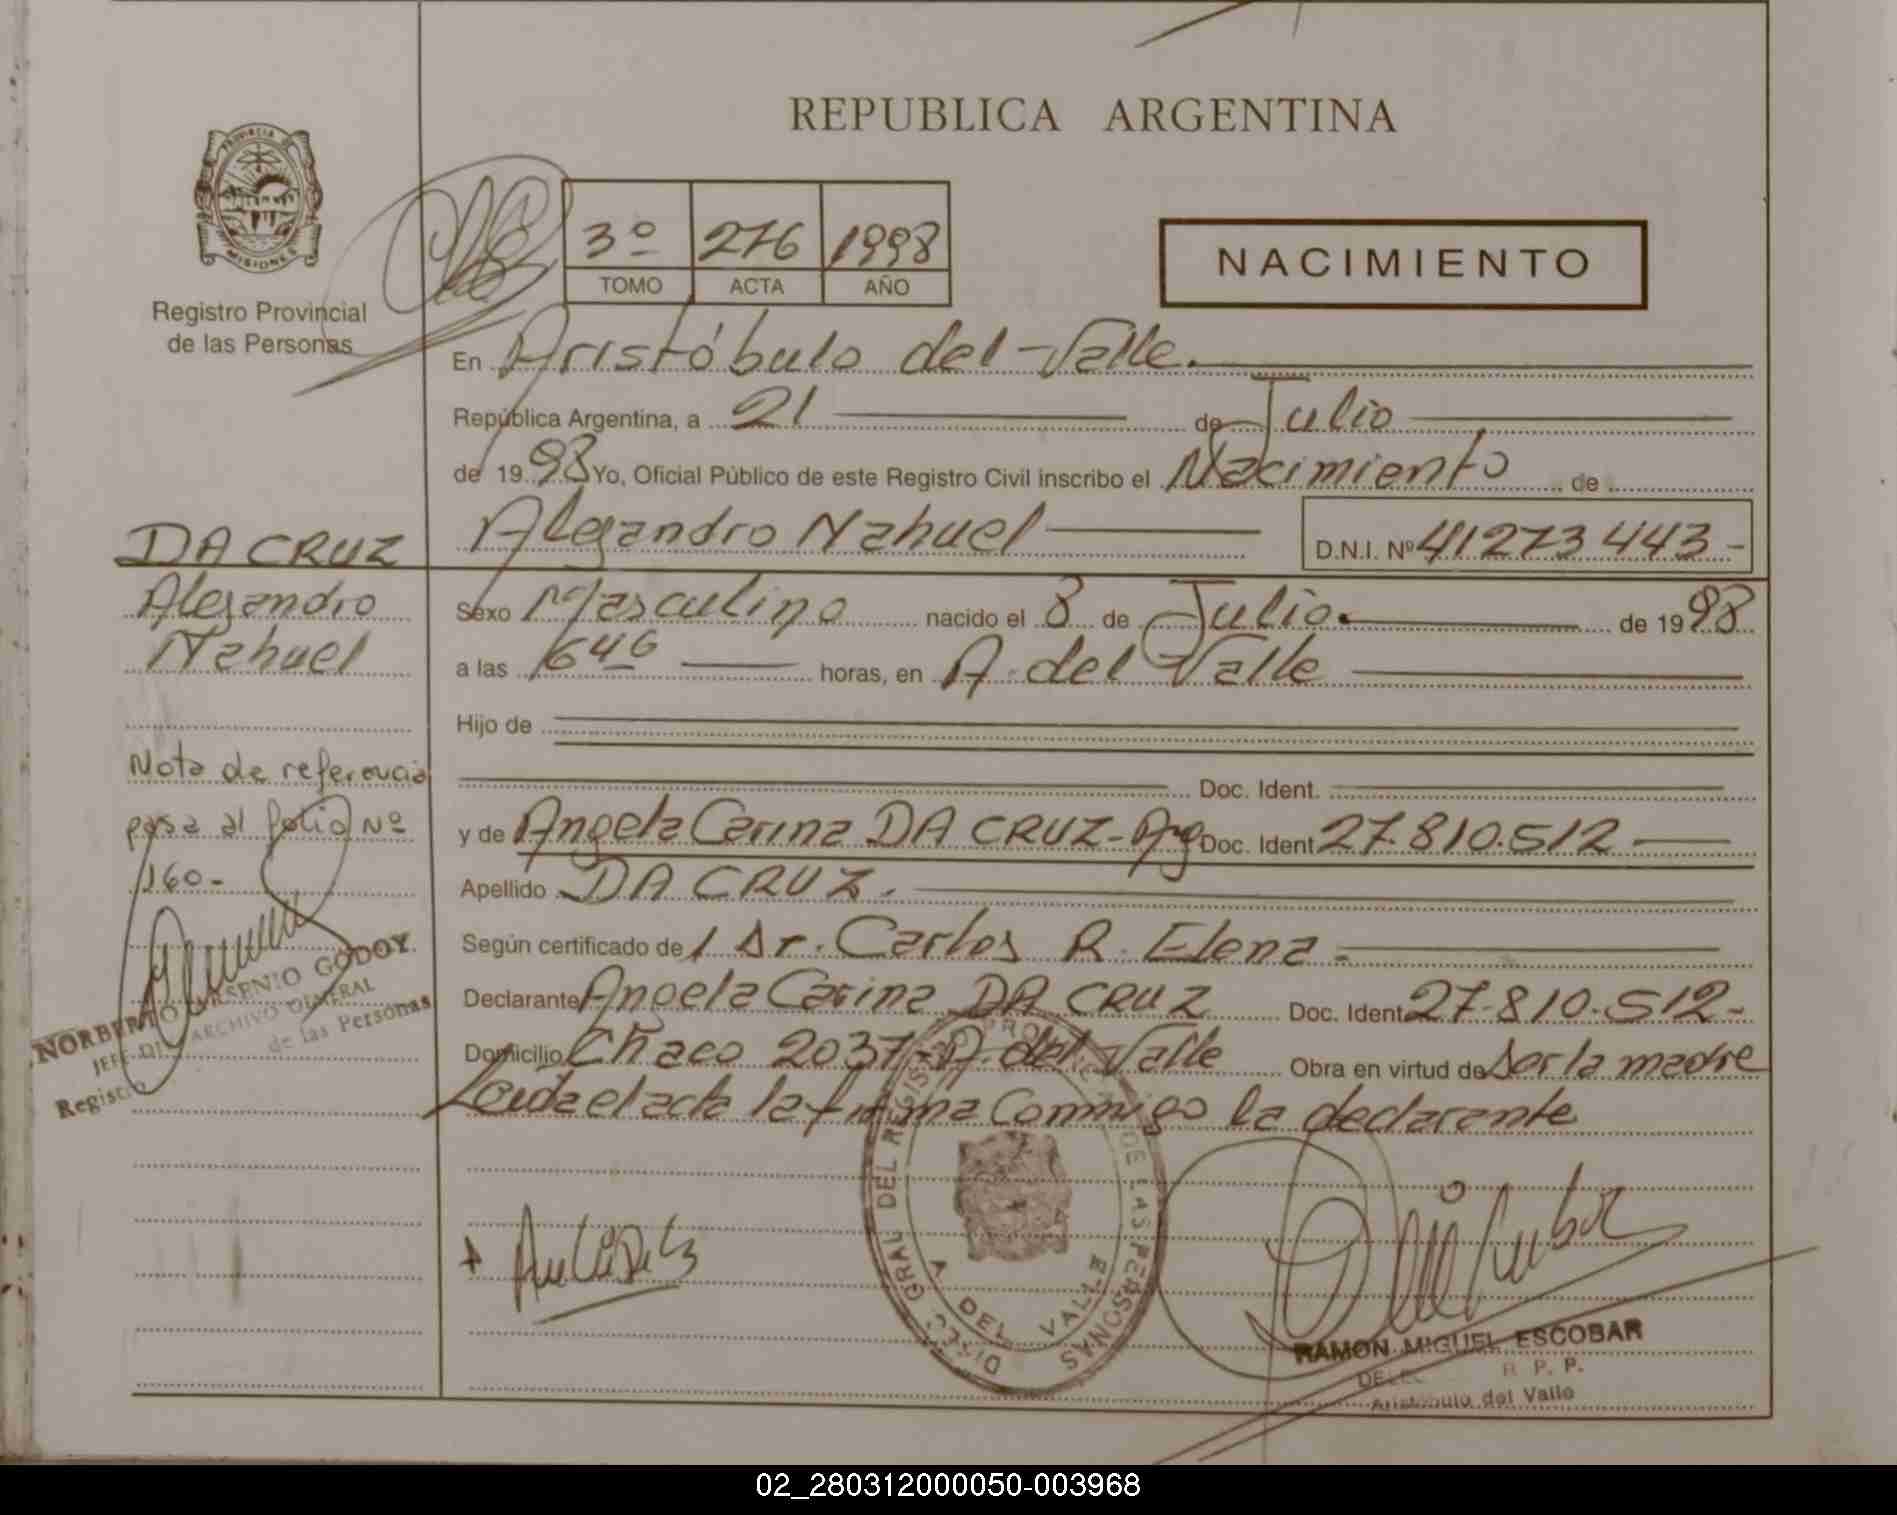 REPUBLICA ARGENTINA
PROVINCIA DE
MISIONES
Registro Provincial
de las Personas
3º 276 1998
TOMO ACTA AÑO
NACIMIENTO
En Aristóbulo del Valle.
República Argentina, a 21 de Julio
de 1998 Yo, Oficial Público de este Registro Civil inscribo el Nacimiento de
Alejandro Nahuel D.N.I. Nº 41273443-
Sexo Masculino nacido el 8 de Julio. de 1998
a las 1646 horas, en A. del Valle
Hijo de
Doc. Ident.
y de Angela Carina DA CRUZ-Arg Doc. Ident 27.810.512
Apellido DA CRUZ.
Según certificado de Dr. Carlos R. Elena
Declarante Angela Carina DA CRUZ Doc. Ident 27-810-512-
Domicilio Chaco 2037-A. del Valle Obra en virtud de ser la madre
Leida el acta la firma conmigo la declarante
DA CRUZ
Alejandro
Nahuel
Nota de referencia
pasa al folio Nº
160-
NORBERTO ARSENIO GODOY
JEFE ARCHIVO GENERAL
Registro de las Personas
DIREC. GRAL DEL REGISTRO PROVINCIAL DE LAS PERSONAS
A DEL VALLE
RAMON MIGUEL ESCOBAR
R. P. P.
Aristóbulo del Valle
02_280312000050-003968